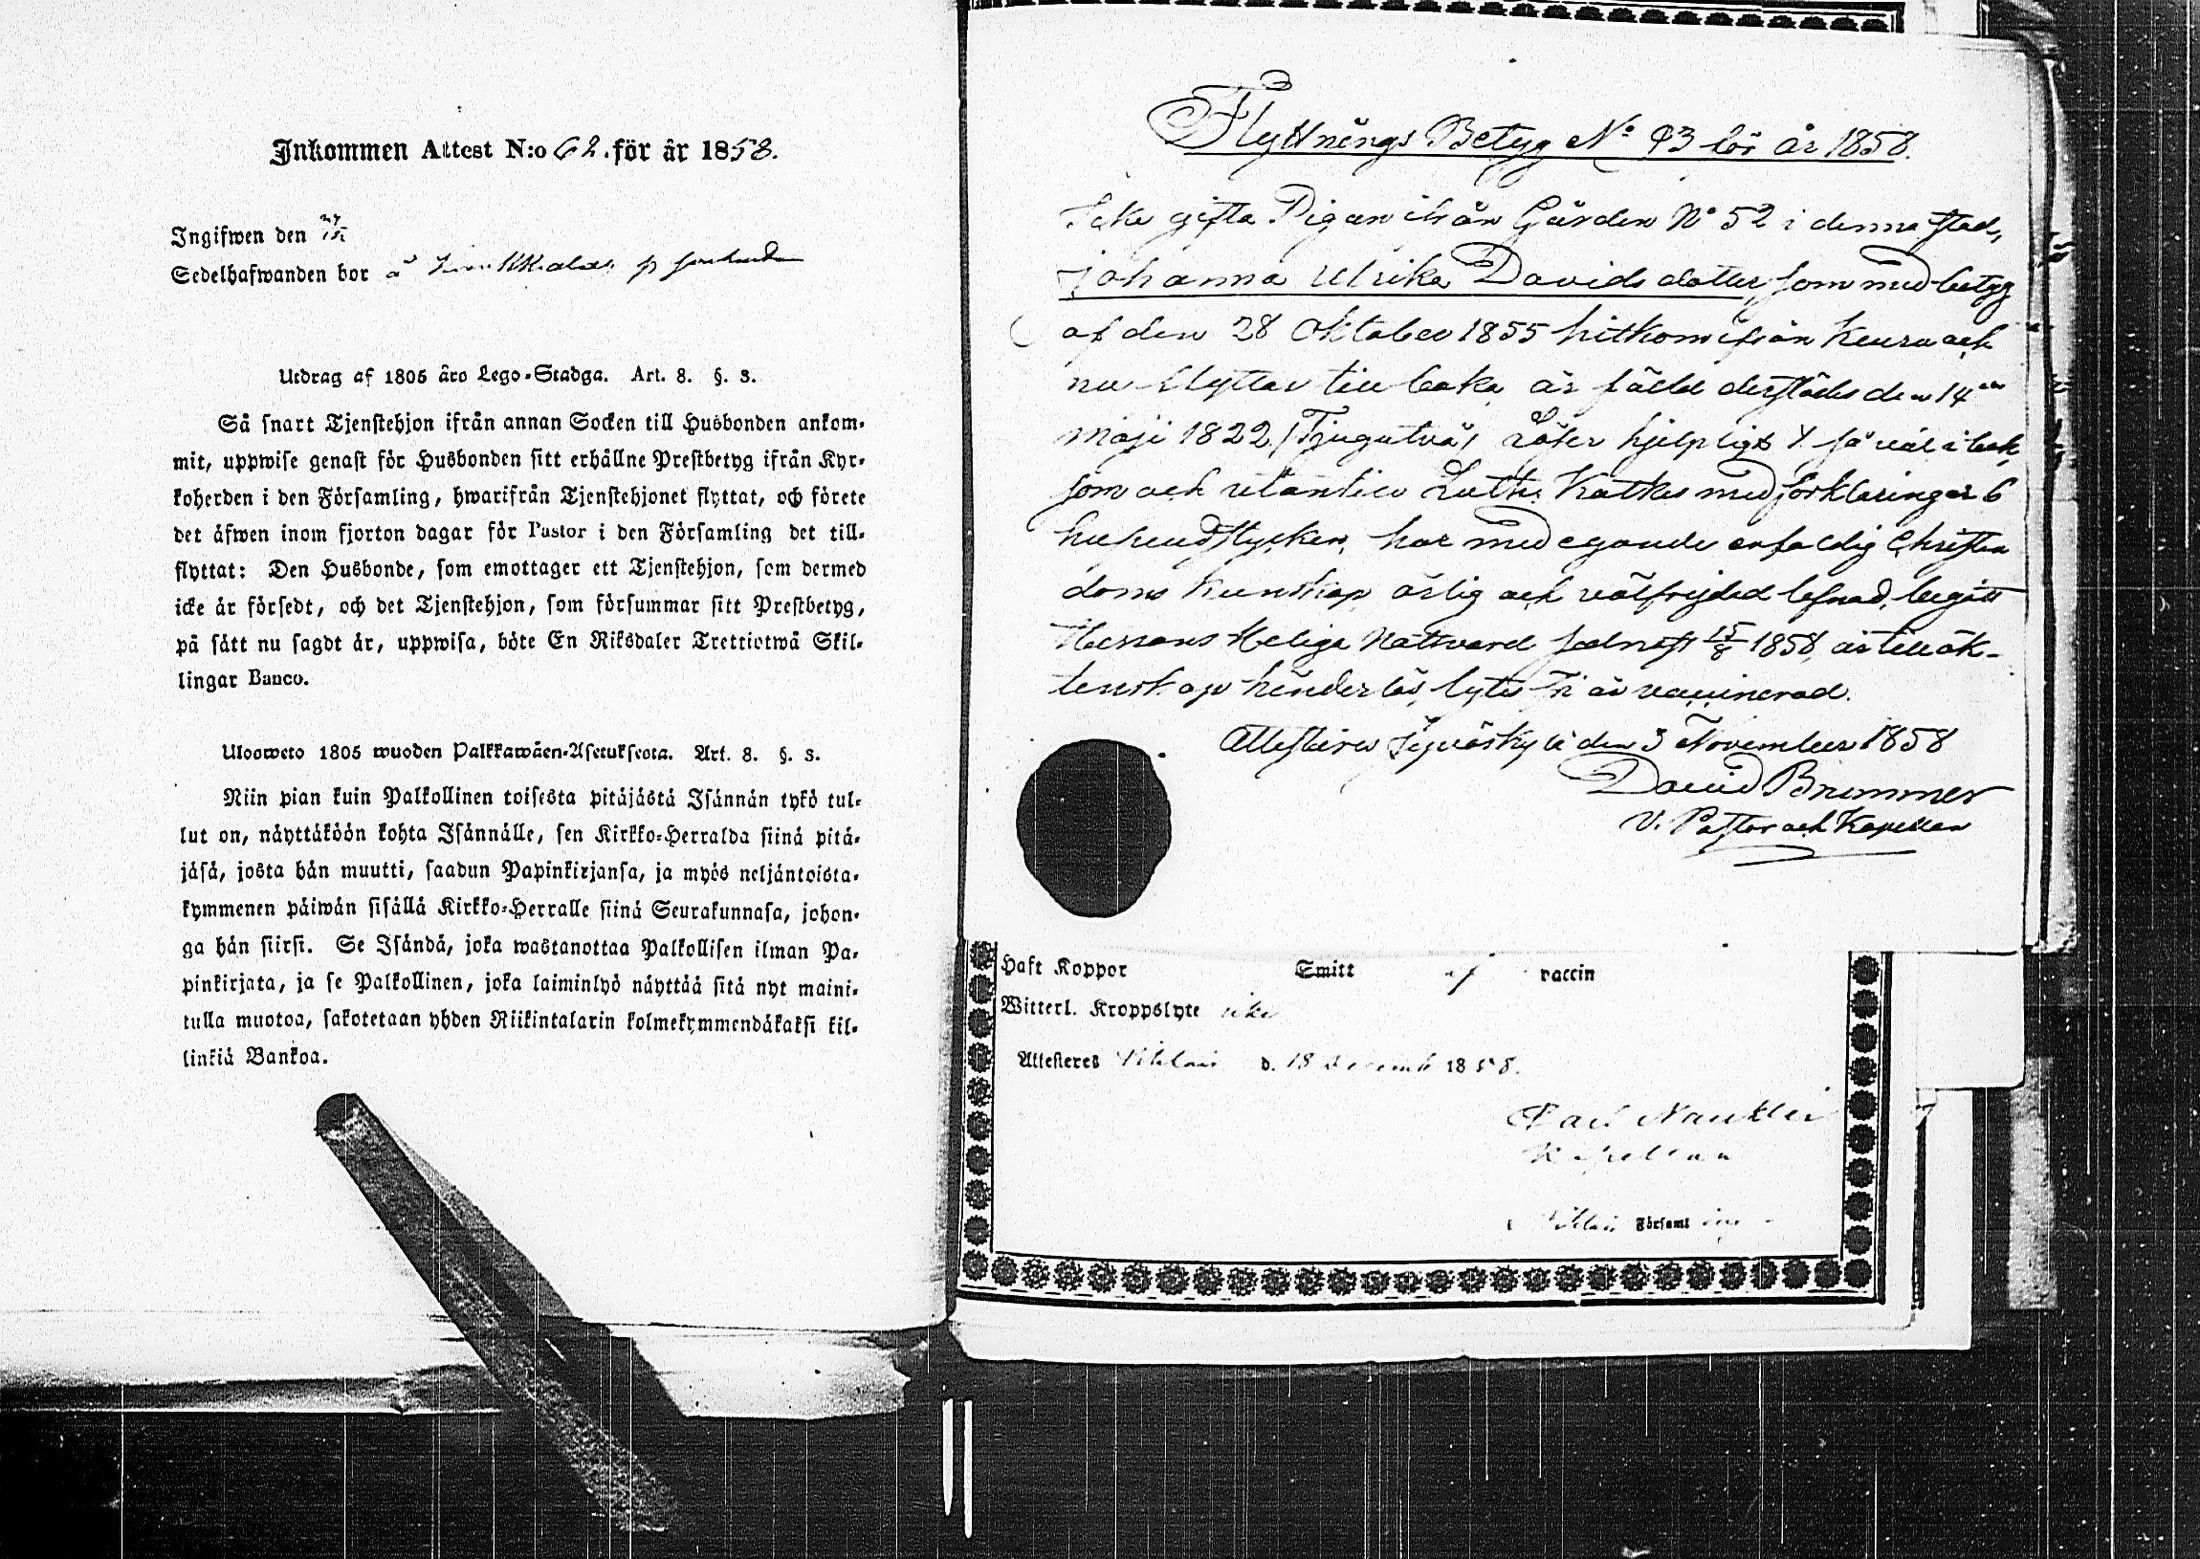 Inkommen Attest N:o 62. för år 1858.
Ingifwen den
Sedelhafwanden bor å
Utdrag af 1805 års Lego-Stadga. Art. 8. §. 3.
Så snart Tjenstehjon ifrån annan Socken till Husbonden ankom-
mit, uppwise genast för Husbonden sitt erhållne Prestbetyg ifrån Kyr-
koherden i den Församling, hwarifrån Tjenstehjonet flyttat, och förete
det äfwen inom fjorton dagar för Pastor i den Församling det till-
flyttat: Den Husbonde, som emottager ett Tjenstehjon, som dermed
icke är försedt, och det Tjenstehjon, som försummar sitt Prestbetyg,
på sätt nu sagdt är, uppwisa, böte En Riksdaler Trettiotwå Skil-
lingar Banco.
Ulosweto 1805 wuoden Palkkawäen-Asetuksesta. Art. 8. §. 3.
Niin pian kuin Palkollinen toisesta pitäjästä Isännän tykö tul-
lut on, näyttäköön kohta Isännälle, sen Kirkko-Herralda siinä pitä-
jäsä, josta hän muutti, saadun Papinkirjansa, ja myös neljäntoista-
kymmenen päiwän sisällä Kirkko-Herralle siinä Seurakunnasa, johon-
ga hän siirsi. Se Isändä, joka wastanottaa Palkollisen ilman Pa-
pinkirjata, ja se Palkollinen, joka laiminlyö näyttää sitä nyt maini-
tulla muotoa, sakotetaan yhden Riikintalarin kolmekymmendäkaksi kil-
linkiä Bankoa.
Flyttnings Betyg No 93 för år 1858.
Icke gifta Pigan ifrån Gården No 52 i denna stad,
Johanna Ulrika Davidsdotter, som med betyg
af den 28 Oktober 1855 hitkom ifrån Keuru och
nu flyttar tillbaka är född derstädes den 14de
Maji 1822 /Tjugutvå/ Läser hjelpligt så väl i bok,
som och utantill Luth. Katkes med förklaringar 6
hufvudstycken, har med egande enfaldig Christen
doms kunskap ärlig och välfrejdad lefnad, begått
Herrans Heliga Nattvard sednast 15/8 1858, är till äk-
tenskap hinderlös, lytes fri är vaccinerad.
Attesteras Jyväskylä den 3 November 1858
David Brummer
V. Pastor och Kapellan
Haft Koppor Smitt af vaccin
Witterl. Kroppslyte icke
Attesteras d. 18 Decemb 1858.
Carl
Kapellan
Församling